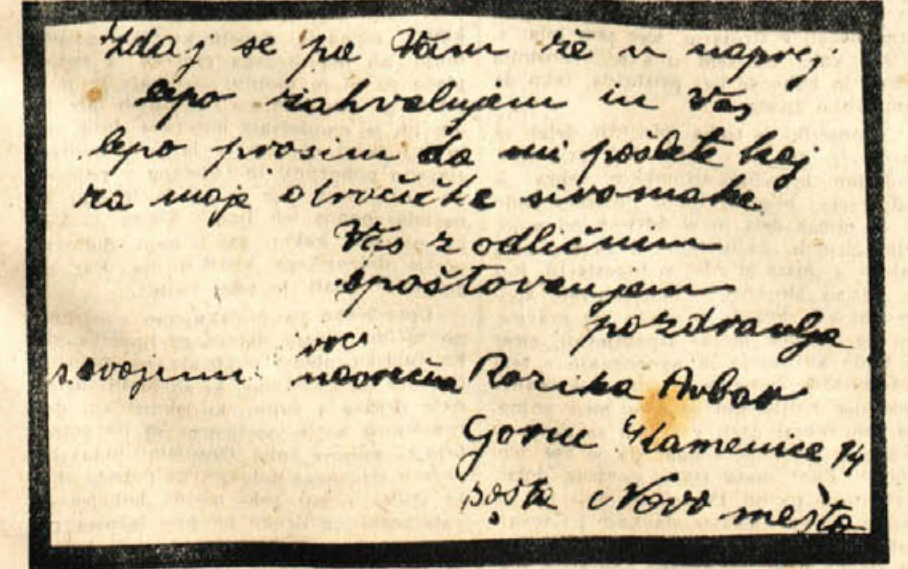 Zdaj se pa Vam že v naprej
lepo zahvalujem in Vas
lepo prosim da mi pošlete kaj
za moje otročičke siromake.
Vas z odličnim
spoštovanjem
pozdravlja
voci
s svojimi Rozika Avbar
Gorne Kamenice 14
pošta Novo mesto